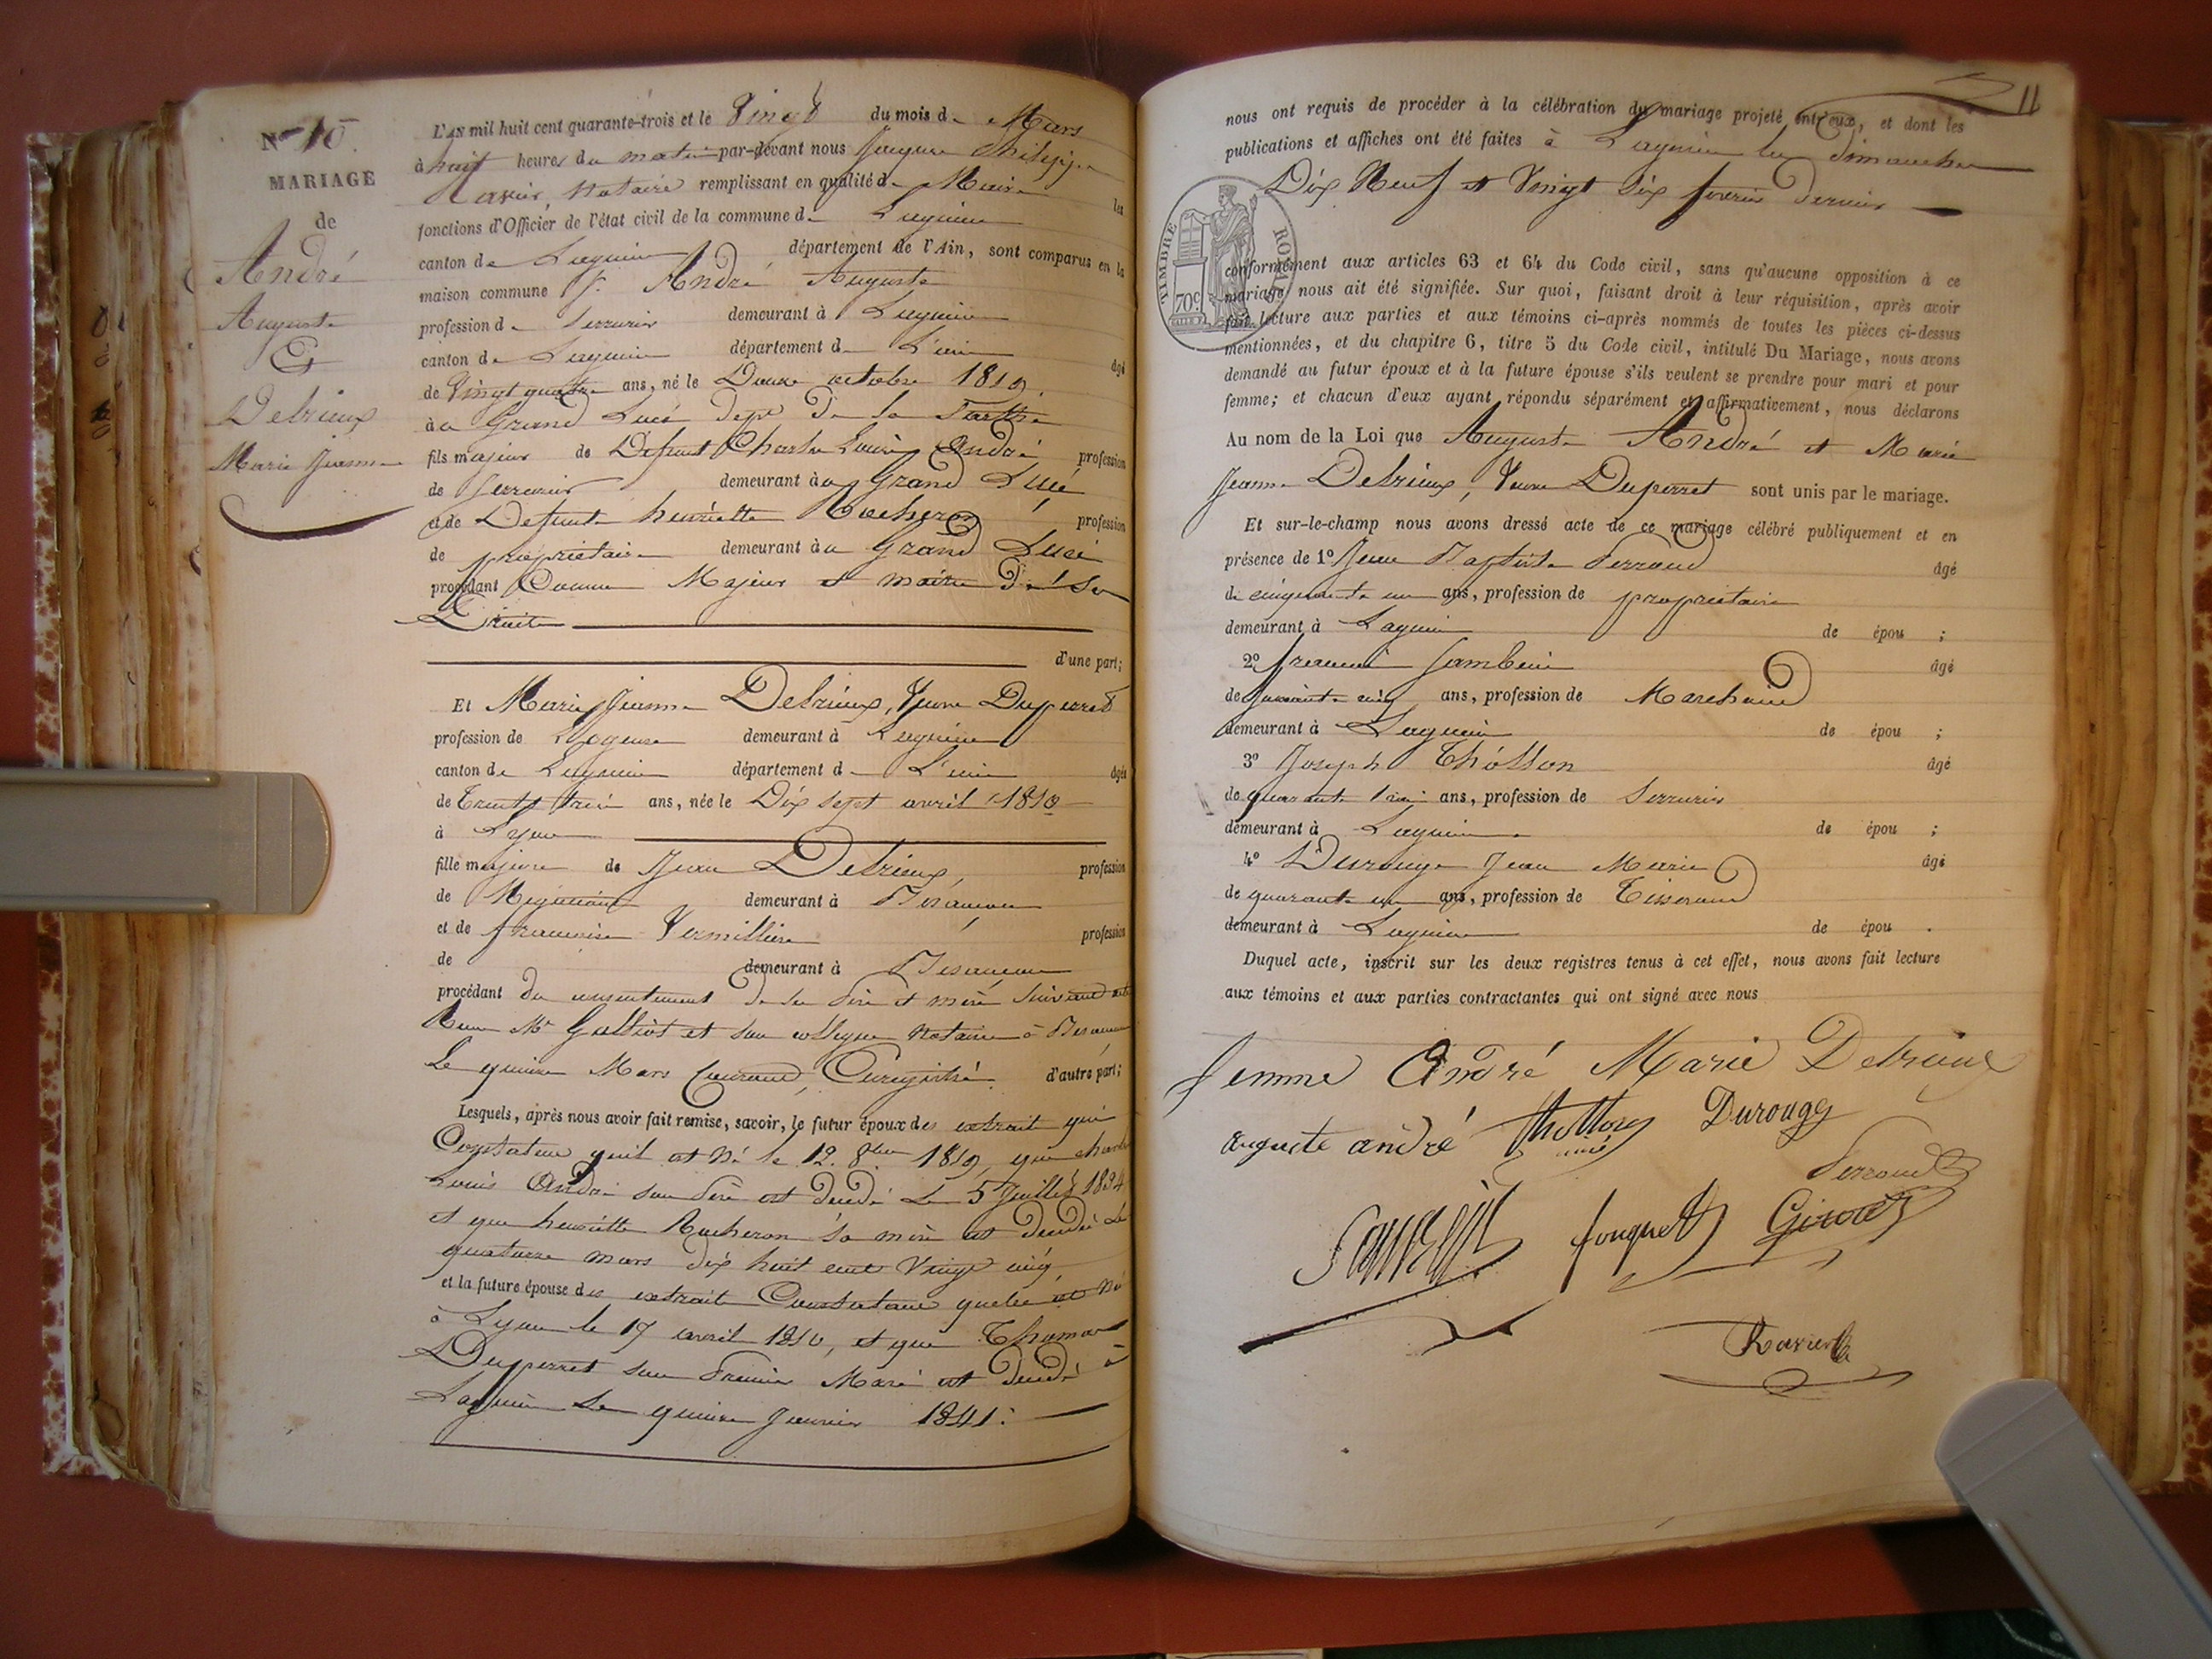 No 10.
MARIAGE
de
André
Auguste
Et
Detrieux
Marie Jeanne
L'AN mil huit cent quarante-trois et le Vingt du mois de Mars
à huit heures du matin par-devant nous Jacques Philippe
Ravier, Notaire remplissant en qualité de Maire les
fonctions d'Officier de l'état civil de la commune de Lagnieu
canton de Lagnieu département de l'Ain, sont comparus en la
maison commune Sr. André Auguste
profession de Serrurier demeurant à Lagnieu
canton de Lagnieu département de L'ain âgé
de Vingt quatre ans, né le Douze octobre 1819
à Grand Lucé dept de la Sarthe
fils majeur de Défunt Charles Louis André profession
de Serrurier demeurant à Grand Lucé
et de Defunte henriette Rocheron profession
de propriétaire demeurant à Grand Lucé
procédant Comme Majeur et maitre de Ses
Droits
d'une part;
Et Marie Jeanne Detrieux, Veuve Duperret
profession de Logeuse demeurant à Lagnieu
canton de Lagnieu département de L'ain âgée
de Trente trois ans, née le Dix sept avril 1810
à Lyon
fille majeure de Jean Detrieux, profession
de Négociant demeurant à Besançon
et de francoise Vermilliere profession
de demeurant à Besançon
procédant du consentement de ses Père et mère Suivant acte
Reçu Me et son collegue Notaires à Besançon
Le quinze Mars Courant, Enregistré. d'autre part;
Lesquels, après nous avoir fait remise, savoir, le futur époux des extraits qui
Constatent qu'il est Né le 12. 8bre 1819, que charles
Louis André son Père est décédé Le 5 Juillet 1834
et que henriette Rocheron sa mère est décédée Le
quatorze mars dix huit cent Vingt cinq
et la future épouse des extraits Constatant quelle est Né
à Lyon le 17 avril 1810, et que Thomas
Duperret son Premier Mari est décédé à
Lagnieu Le quinze Janvier 1841.
11
nous ont requis de procéder à la célébration du mariage projeté entr'eux, et dont les
publications et affiches ont été faites à Lagnieu les dimanches
Dix Neuf et Vingt Six fevrier dernier
TIMBRE ROYAL
70c
conformément aux articles 63 et 64 du Code civil, sans qu'aucune opposition à ce
mariage nous ait été signifiée. Sur quoi, faisant droit à leur réquisition, après avoir
fait lecture aux parties et aux témoins ci-après nommés de toutes les pièces ci-dessus
mentionnées, et du chapitre 6, titre 5 du Code civil, intitulé Du Mariage, nous avons
demandé au futur époux et à la future épouse s'ils veulent se prendre pour mari et pour
femme; et chacun d'eux ayant répondu séparément et affirmativement, nous déclarons
Au nom de la Loi que Auguste André et Marie
Jeanne Detrieux, Veuve Duperret sont unis par le mariage.
Et sur-le-champ nous avons dressé acte de ce mariage célébré publiquement et en
présence de 1º Jean Baptiste Perraud âgé
de cinquante un ans, profession de propriétaire
demeurant à Lagnieu de épou ;
2º francois âgé
de cinq ans, profession de Marchand
demeurant à Lagnieu de épou ;
3º Joseph Thollon âgé
de quarante ans, profession de Serrurier
demeurant à Lagnieu de épou ;
4º Durouge Jean Marie âgé
de quarante un ans, profession de Tisserand
demeurant à Lagnieu de épou .
Duquel acte, inscrit sur les deux registres tenus à cet effet, nous avons fait lecture
aux témoins et aux parties contractantes qui ont signé avec nous
femme André Marie Detrieux
auguste andré Thollon Durouge
ainé
Perraud
fouquet Girod
Ravier